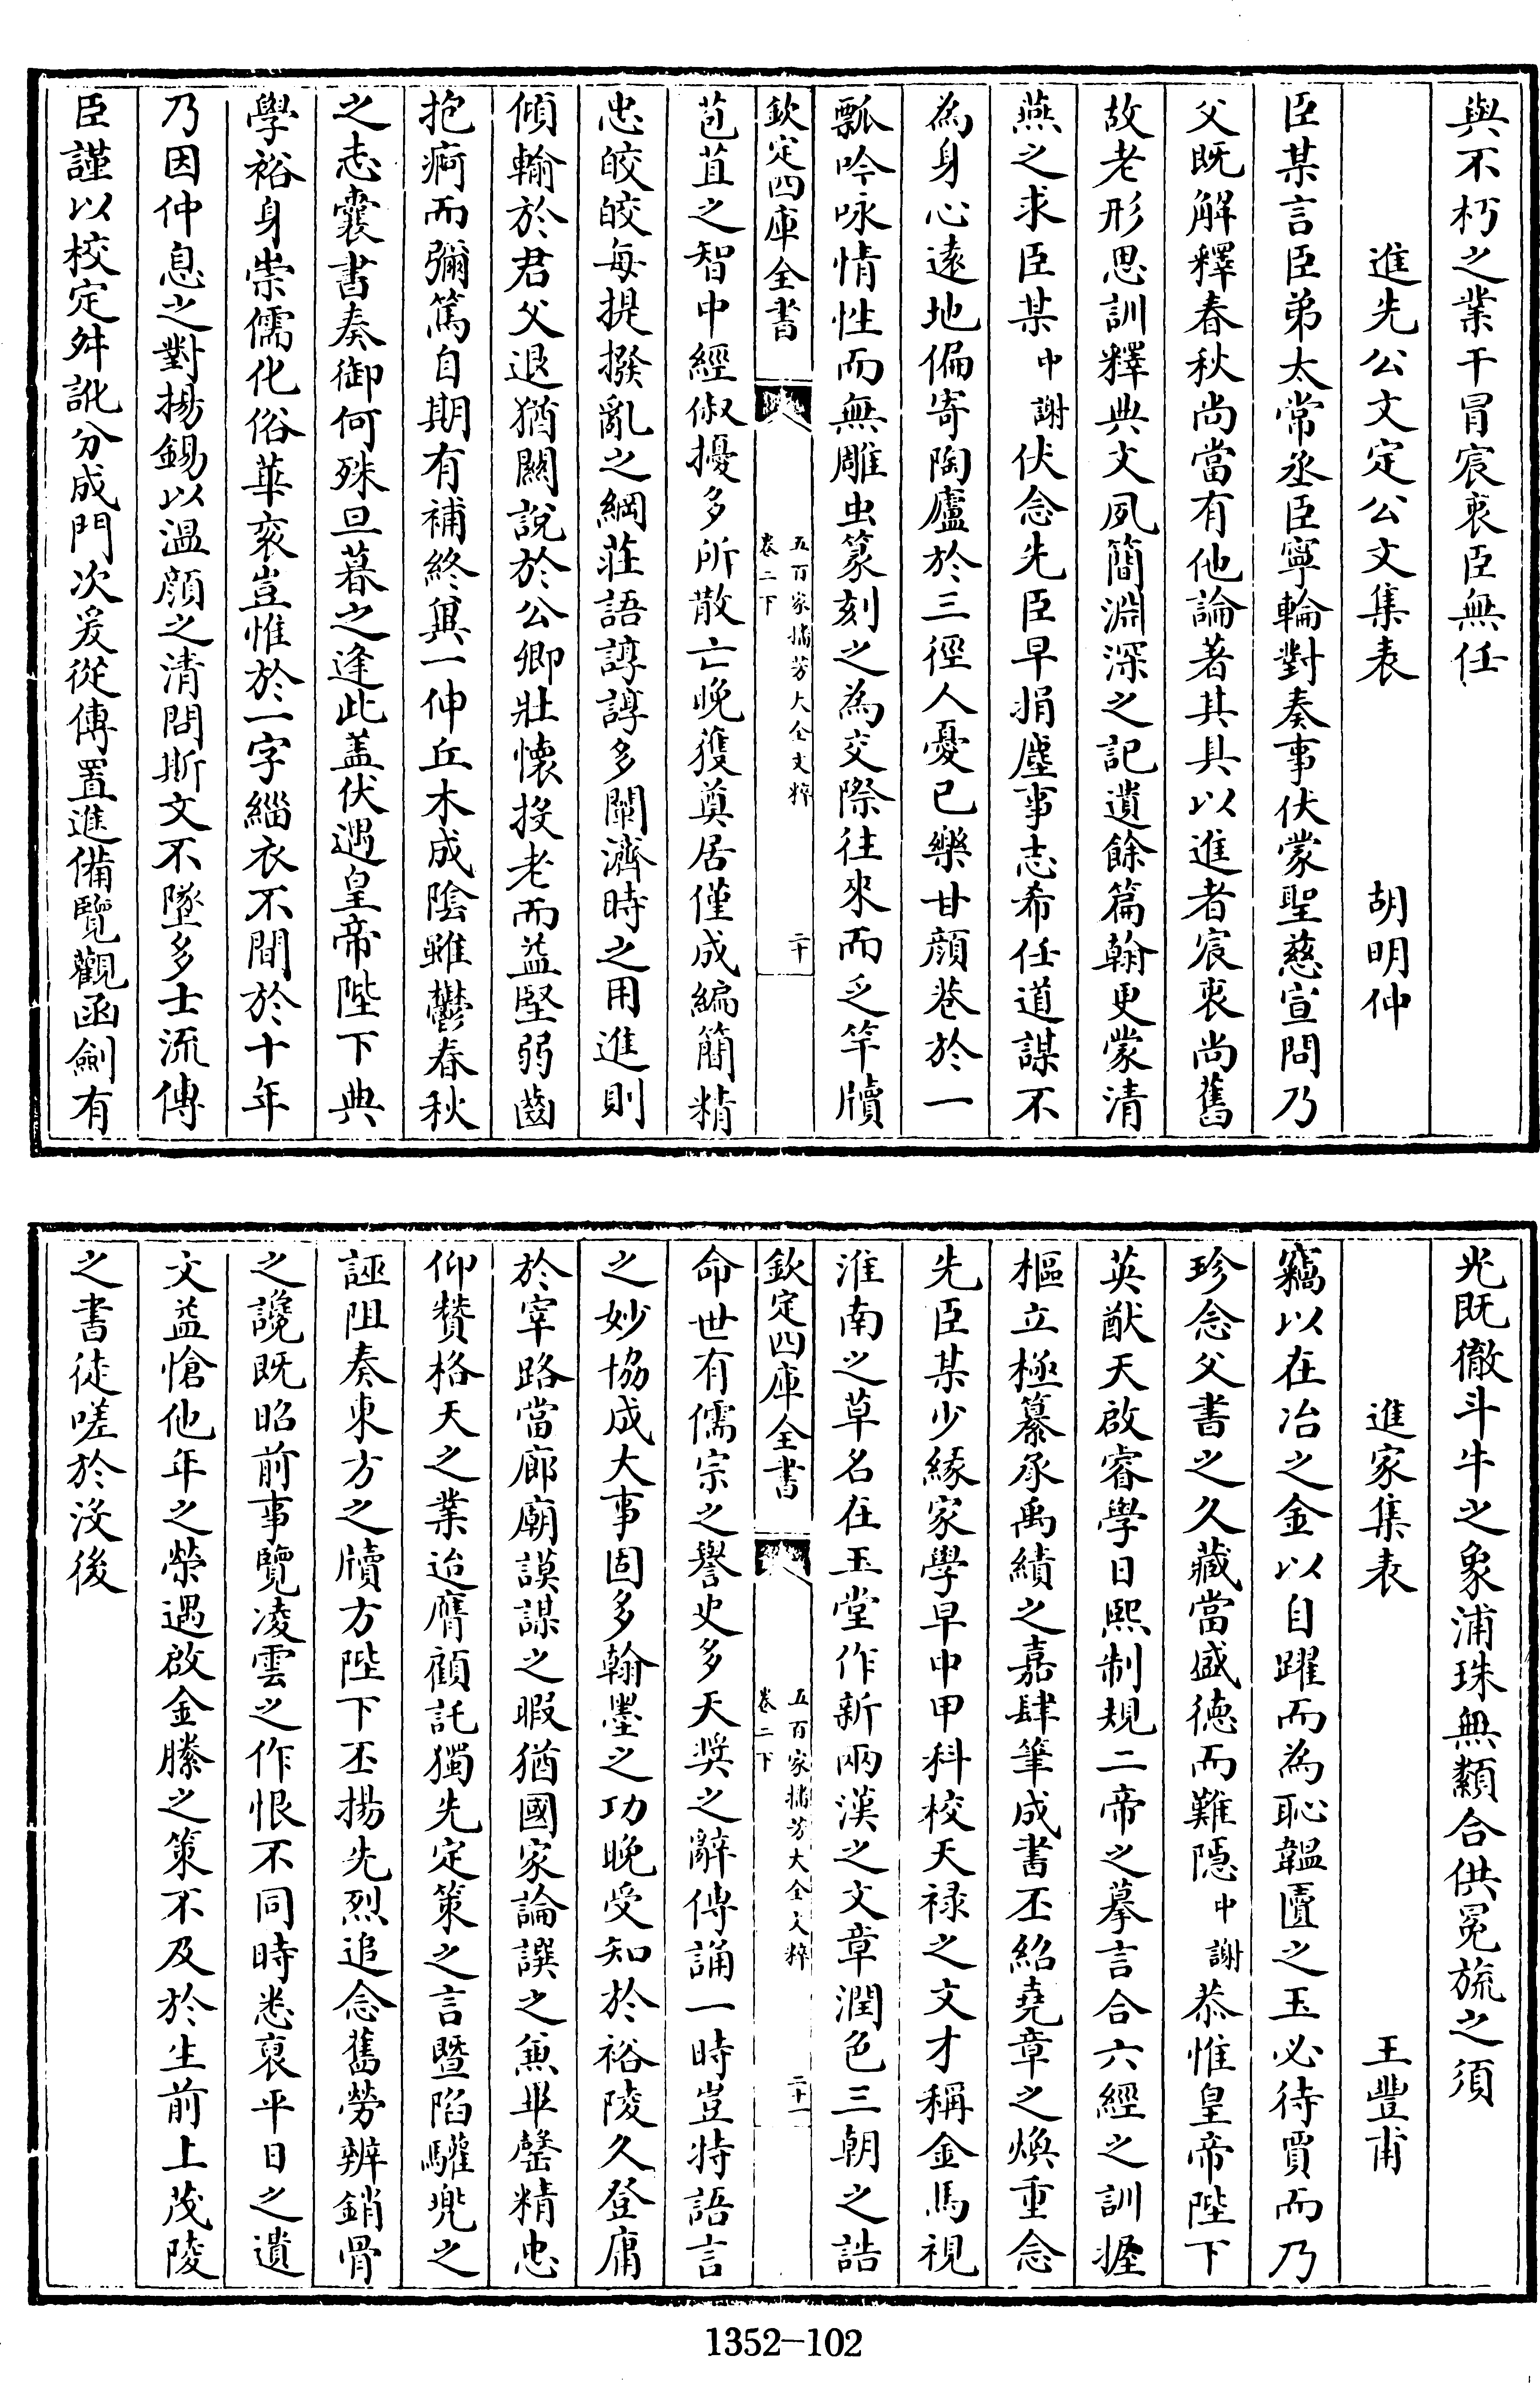 與不朽之業干冒宸衷臣無任
進先公文定公文集表　胡明仲
臣某言臣弟太常丞臣寧輪對奏事伏蒙聖慈宣問乃
父既解釋春秋尚當有他論著其具以進者宸衷尚舊
故老形思訓釋典文夙簡淵深之記遺餘篇翰更蒙清
燕之求臣某中謝伏念先臣早捐塵事志希任道謀不
為身心遠地偏寄陶廬於三徑人憂已樂甘顔巷於一
瓢吟咏情性而無雕虫篆刻之為交際往來而乏竿牘
欽定四庫全書
五百家播芳大全文粹
卷二下
二十
苞苴之智中經俶擾多所散亡晚獲奠居僅成編簡精
忠皎皎每提撥亂之綱莊語諄諄多闡濟時之用進則
傾輸於君父退猶關說於公卿壯懷投老而益堅弱齒
抱痾而彌篤自期有補終與一仲丘木成陰雖鬱春秋
之志囊書奏御何殊旦暮之逢此盖伏遇皇帝陛下典
學裕身崇儒化俗華衮豈惟於一字緇衣不間於十年
乃因仲息之對揚錫以温顔之清問斯文不墜多士流傳
臣謹以校定舛訛分成門次爰從傳置進備覽觀函劍有
光既徹斗牛之象浦珠無纇合供冕旒之須
進家集表　王豐甫
竊以在冶之金以自躍而為恥韞匵之玉必待賈而乃
珍念父書之久藏當盛徳而難隱中謝恭惟皇帝陛下
英猷天啟睿學日熙制規二帝之摹言合六經之訓握
樞立極纂承禹績之嘉肆筆成書丕紹堯章之煥重念
先臣某少緣家學早中甲科校天禄之文才稱金馬視
淮南之草名在玉堂作新兩漢之文章潤色三朝之誥
欽定四庫全書
五百家播芳大全文粹
卷二下
二十一
命世有儒宗之譽史多天奬之辭傳誦一時豈特語言
之妙協成大事固多翰墨之功晚受知於裕陵久登庸
於宰路當廊廟謨謀之暇猶國家論譔之兼畢罄精忠
仰贊格天之業迨膺顧託獨先定策之言暨陷驩兜之
誣阻奏東方之牘方陛下丕揚先烈追念舊勞辨銷骨
之讒既昭前事覽凌雲之作恨不同時悉裒平日之遺
文益愴他年之榮遇啟金縢之策不及於生前上茂陵
之書徒嗟於沒後
1352-102